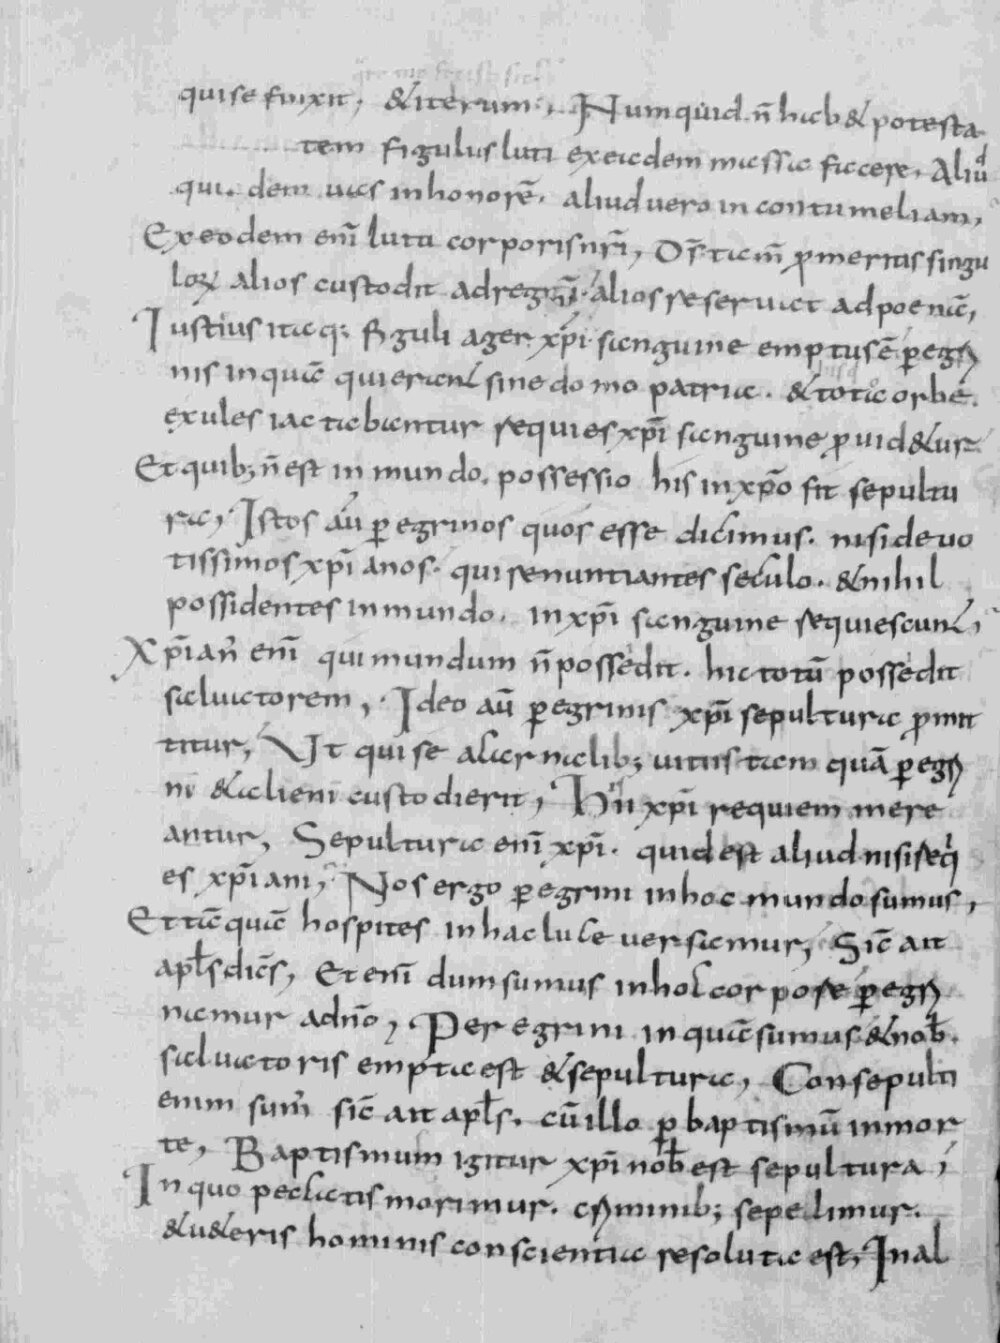 qui se finxit, & iterum., Numquid n̄ hab& potesta
tem figulus luti exeadem massa facere. Aliud
qui. dem uas inhonorē. aliud uero in contumeliam,
Exeodem enī luto corporis nr̄i, Ds̄ tam̄ ꝑ meritis singu
loꝝ alios custodit adregnū. alios reseruat adpoenā,
Iustius itaq; figuli ager xp̄i sanguine emptus ē ꝑegri
nis inquā qui erant sine domo patria. & totō orbe.
exules iactabantur requies xp̄i sanguine ꝓuid&ur
Et quib; n̄ est in mundo. possessio his inxp̄o fit sepultu
ra, Istos aū ꝑegrinos quos esse dicimus. nisi deuo
tissimos xp̄ianos. qui renuntiantes seculo. & nihil
possidentes inmundo. in xp̄i sanguine requiescunt,
Xp̄ian' enī qui mundum n̄ possedit. hic totū possedit
saluatorem, Ideo aū ꝑegrinis xp̄i sepultura ꝓmit
titur, Ut qui se a carnalib; uitiis tam quā ꝑegri
ni & alieni custodierit, Hii xp̄i requiem mere
antur, Sepultura enī xp̄i. quid est aliud nisi requi
es xp̄iani, Nos ergo ꝑegrini inhoc mundo sumus,
Et tāquā hospites in hac luce uersamur, Sic̄ ait
apłs dic̄s, Et enī dum sumus inhoc corpore ꝑegri
namur adn̄o, Peregrini inquā sumus & nob̄.
saluatoris empta est & sepultura, Consepulti
enim sum' sic̄ ait apłs. cū illo ꝑ baptismū inmor
te, Baptismum igitur xp̄i nob̄ est sepultura,
In quo peccatis morimur. criminib; sepelimur.
& u&eris hominis conscientia resoluta est, In al